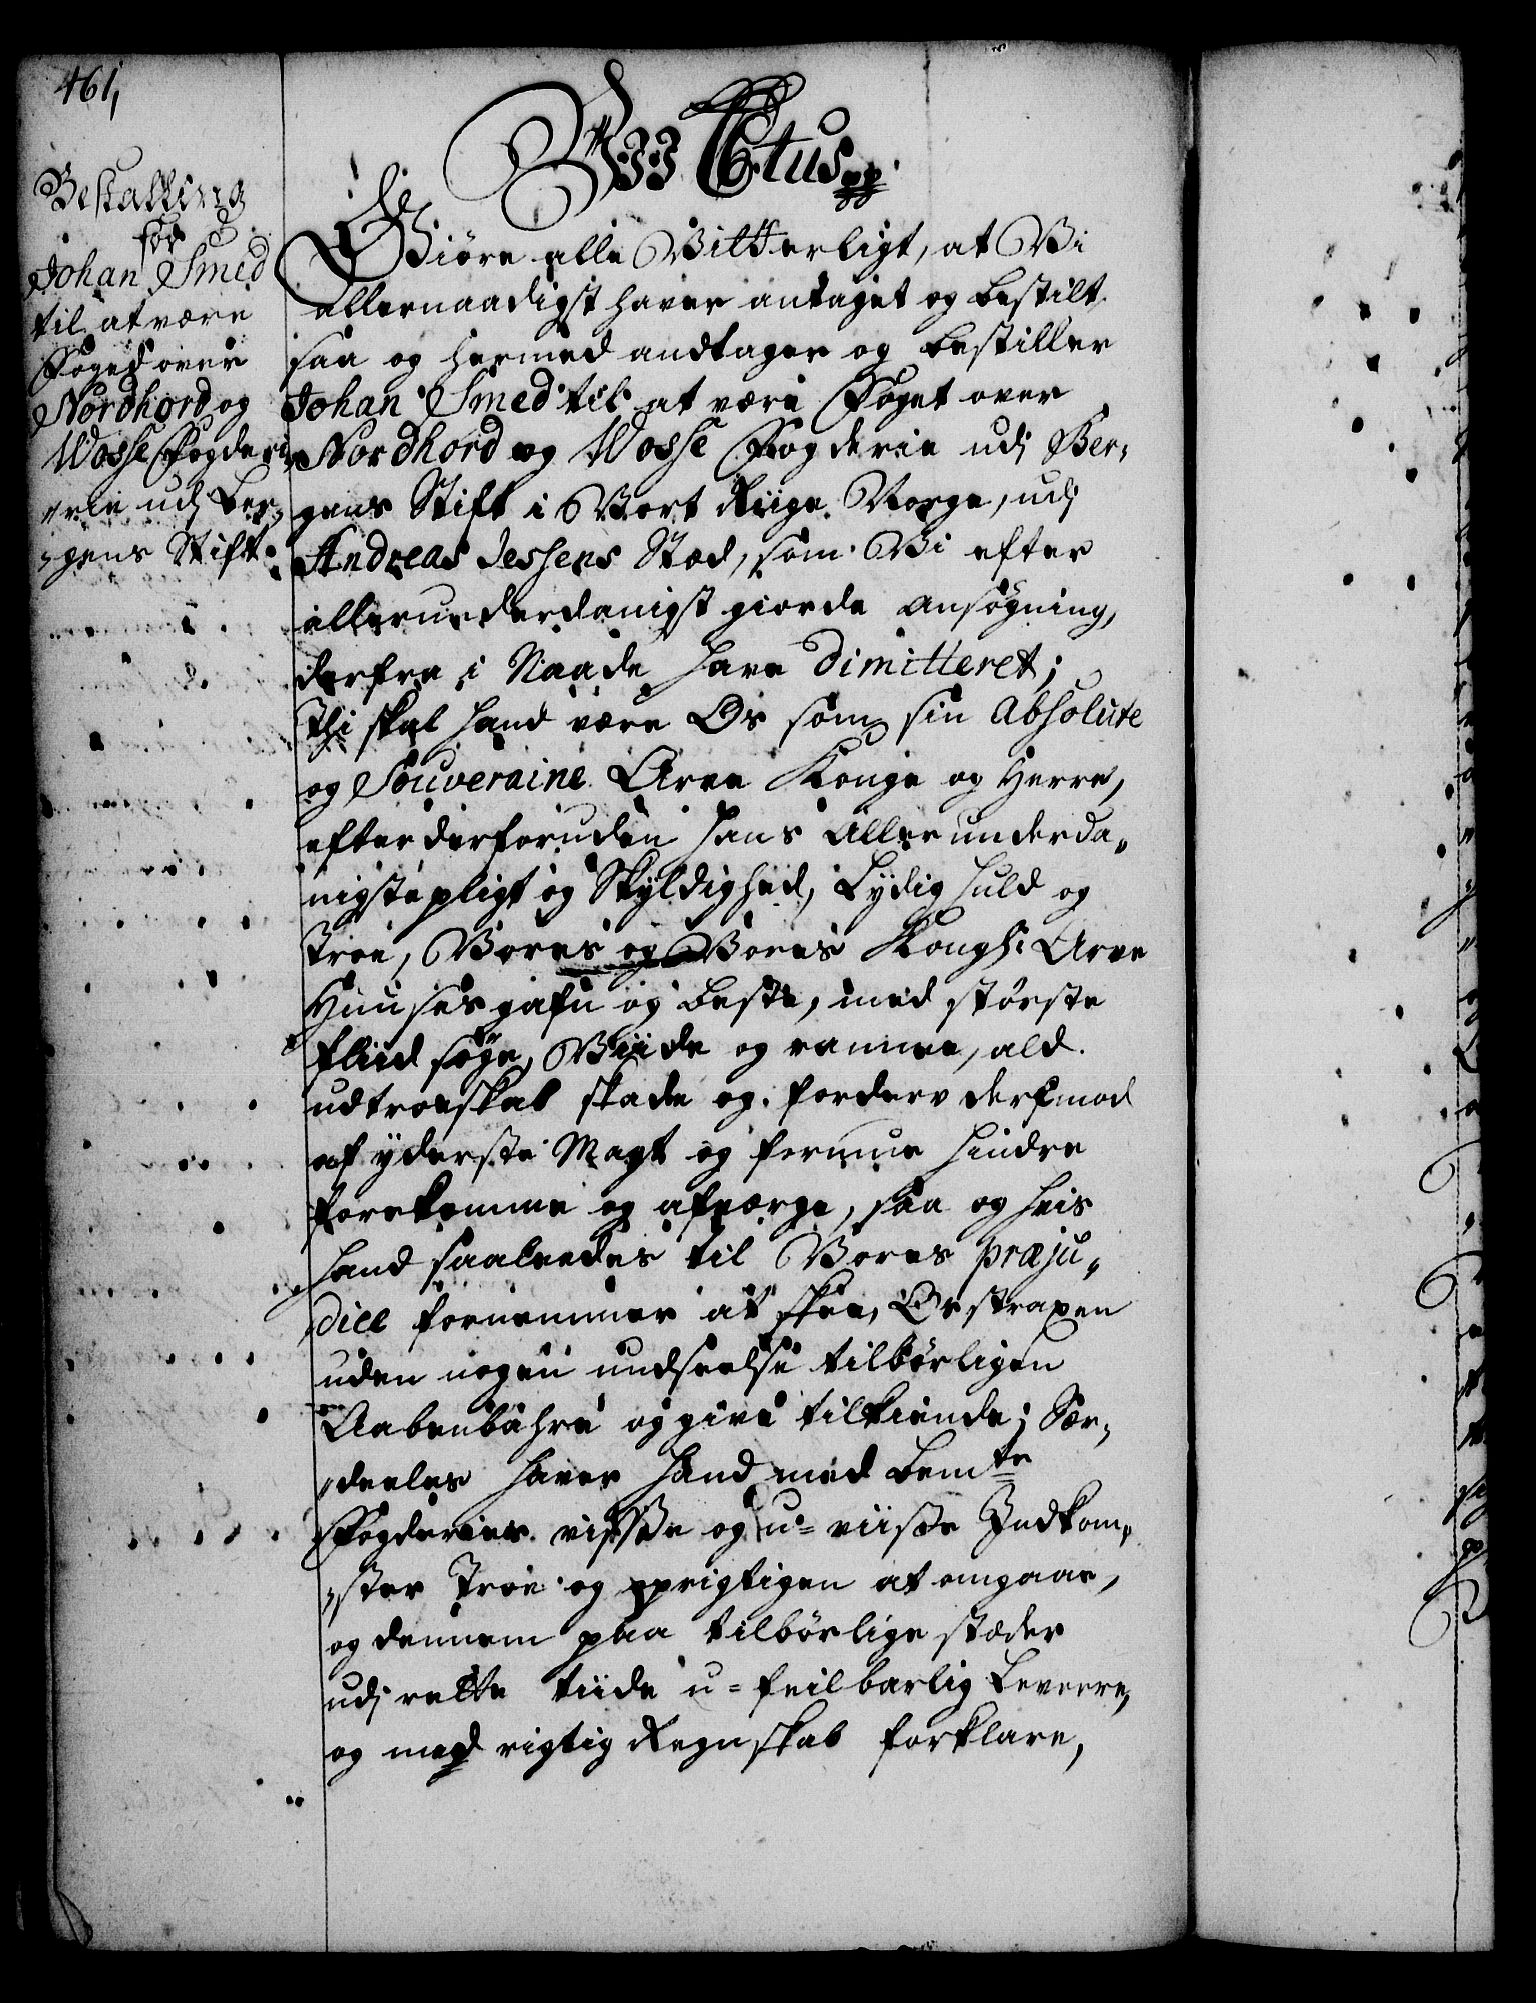 461,
Bestalling
for
Johan Smed
til at være
Foged over
Nordhord og
Wosse Fogderi
"erie udj Ber,
"gens Stift.
Wii Ctus pp.
Giöre alle Vitterligt, at Vi
allernaadigst haver antaget og bestilt
saa og hermed andtager og bestiller
Johan Smed til at være Foget over
Nordhord og Wosse Fogderie udj Ber,
gens Stift i Vort Riige Norge, udj
Andreas Jessens Stæd, som Vi efter
allerunderdanigst giorde ansøgning,
derfra i Naade have Dimitteret;
Thi skal hand være Os som sin Absolute
og Souveraine Arve Konge og Herre,
efter derforuden hans Allerunderda"
nigste pligt og Skyldighed, Lydig huld og
Troe, Vores og Vores Kongl: Arve
Huuses gafn og beste, med største
fliid søge, Viide og ramme, ald
udtroeskab skade og forderv derimod
af yderste Magt og formue hindre
forekomme og afværge, saa og hvis
hand saaleedes til Vores præju"
dice fornemmer at skee, Os straxen
uden nogen undseelse tilbørligen
Aabenbahre og give tilkiende; Sær,
"deeles haver hand med bemte
Fogderies visse og u=viisse Indkom"
"ster Troe og oprigtigen at omgaae,
og dennem paa tilbørlige stæder
udj rette tiide u=feilbarlig levere,
og med rigtig Regnskab forklare,